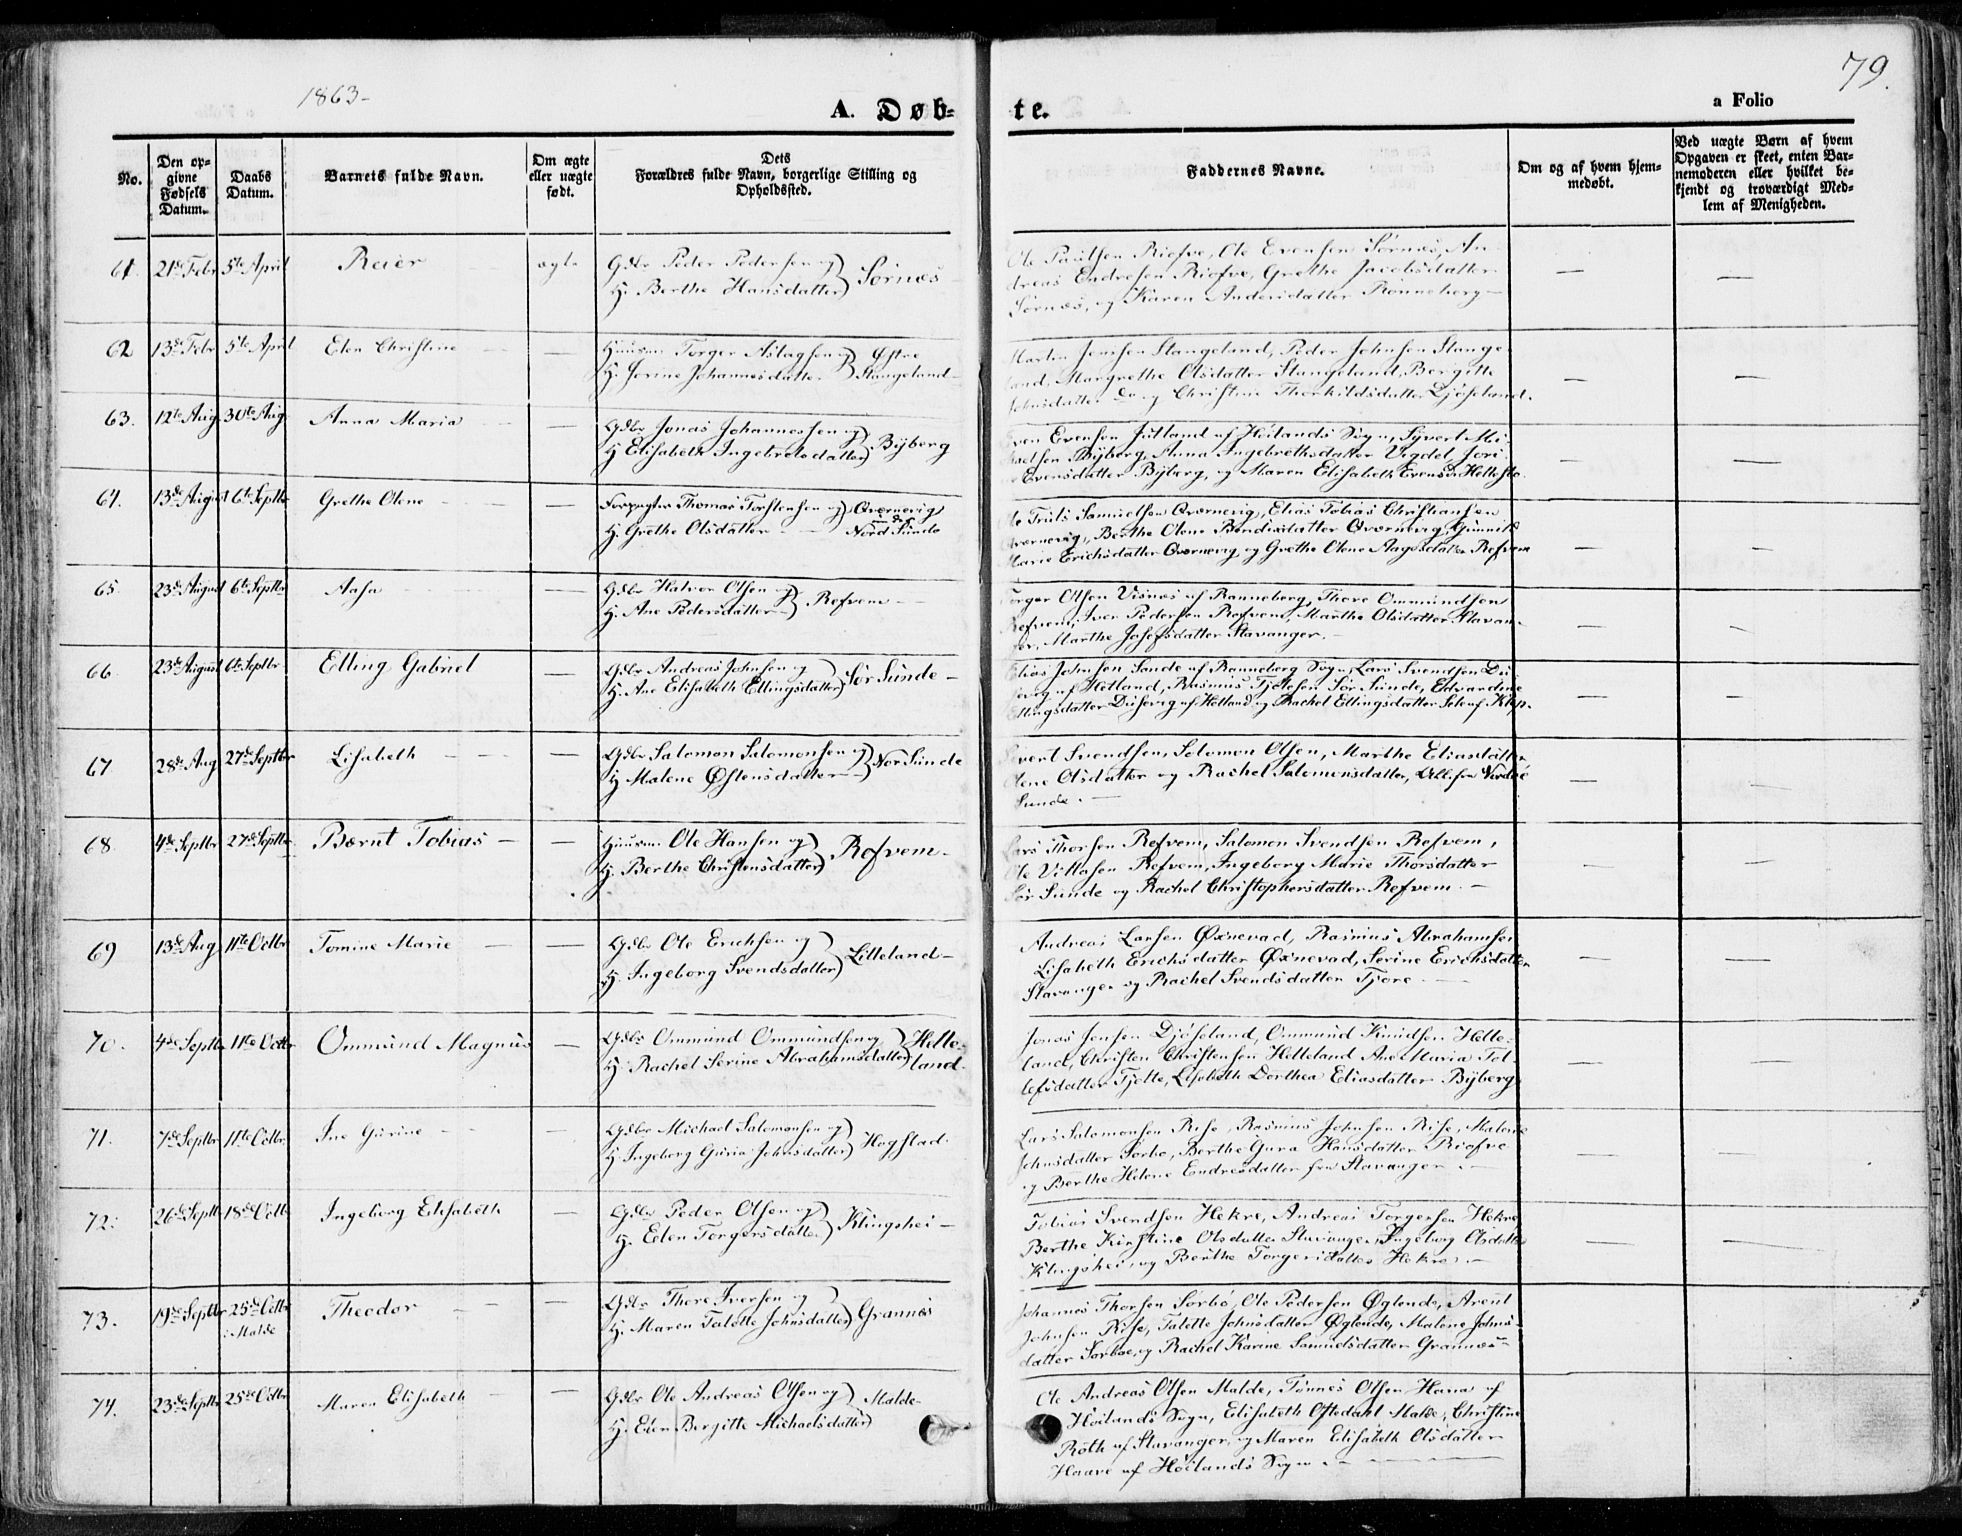 79.
1863-
A. Døb-
te.
a Folio
No.
Den op-
givne
Fødsels
Datum.
Daabs
Datum.
Barnets fulde Navn.
Om ægte
eller uægte
født.
Dets
Forældres fulde Navn, borgerlige Stilling og
Opholdssted.
Faddernes Navne.
Om og af hvem hjem-
medøbt.
Ved uægte Børn af hvem
Opgaven er skeet, enten Bar-
nemoderen eller hvilket be-
kjendt og troværdigt Med-
lem af Menigheden.
61. 21de Febr 5te April Reier ægte Gdbr Peder Pedersen og
H. Berthe Hansdatter) Sørnæs
Ole Paulsen Riofve, Ole Evensen Sørnæs, An-
dreas Endresen Riofve, Grethe Jacobsdatter
Sørnæs, og Karen Andersdatter Rønneberg
62 13de Febr 5te April Elen Christine — Huusm Torger Aslagsen og) Østre
H. Serine Johannesdatter) Stangeland
Martin Jensen Stangeland, Peder Johnsen Stange-
land, Margrethe Olsdatter Stangeland, Bergitte
Johnsdatter do og Christine Thorkildsdatter Djøseland.
63. 12te Aug. 30te Aug. Anna Maria — Gdbr Jonas Johannessen og
H Elisabeth Ingebretsdatter) Byberg
Even Evensen Jutland af Høilands Sogn, Syvert Mi-
kaelsen Byberg, Anna Ingebrethsdatter Vigdel, Jori
Evensdatter Byberg, og Maren Elisabeth Evensd. Hellestø
64. 13de August 6te Septbr Grethe Olene — Forpagter Thomas Torstensen og) Qværnevig
H. Grethe Olsdatter Nord Sunde
Ole Truls Samuelsen Qværnevig, Elias Tobias Christiansen
Qværnevig, Berthe Olene Bendixdatter Qværnevig, Gunnild
Marie Erichsdatter Qværnevig og Grethe Olene Aagesdatter Refvem
65. 23de August 6te Septbr Aasa — Gdbr Halvor Olsen og
H. Ane Pedersdatter) Refvem
Torger Olsen Visnæs af Ranneberg, Thore Ommundsen
Refvem, Iver Pedersen Refvem, Marthe Olsdatter Stavan-
ger, Marthe Josefsdatter Stavanger.
66. 23de August 6te Septbr Elling Gabriel — Gdbr Andreas Johnsen og
H. Ane Elisabeth Ellingsdatter) Sør Sunde
Elias Johnsen Sande af Ranneberg Sogn, Lars Svendsen Du-
sevig af Hetland, Rasmus Tjølesen Sør Sunde, Edvardine
Ellingsdatter Dusevig af Hetland og Rachel Ellingsdatter Sele af Klep.
67 28de Aug 27de Septbr Lisabeth — Gdbr Salomon Salomonsen og
H Malene Østensdatter) Nor Sunde
Sivert Svendsen, Solomon Olsen, Marthe Eliasdatter
Olene Olsdatter og Rachel Salomonsdatter, Alle fra Nordre
Sunde.
68 4de Septbr 27de Septbr Bærnt Tobias — Huusm. Ole Hansen og
H. Berthe Christensdatter) Refvem.
Lars Thorsen Refvem, Salomon Svendsen Refvem,
Ole Villasen Refvem, Ingeborg Marie Thorsdatter
Sør Sunde og Rachel Christophersdatter Refvem.
69 13de Aug 11te Octbr Tomine Marie — Gdbr Ole Erichsen og
H. Ingeborg Svendsdatter) Litleland
Andreas Larsen Øxnevad, Rasmus Abrahamsen
Lisabeth Erichsdatter Øxnevad, Serine Erichsdatter
Stavanger og Rachel Svendsdatter Tjore.
70. 4de Septbr 11te Octbr Ommund Magnus — Gdbr Ommund Ommundsen og) Helle-
H. Rachel Serine Abrahamsdatter) land.
Jonas Jensen Djøseland, Ommund Knudsen Helle-
land, Christen Christensen Helleland Ane Maria Tol-
lefsdatter Tjelte, Lisabeth Dorthea Eliasdatter Byberg
71. 7de Septbr 11te Octbr. Ine Gurine — Gdbr Michael Salomonsen og
H Ingeborg Guria Johnsdatter) Hogstad.
Lars Salomonsen Rise, Rasmus Johnsen Rise, Malene
Johnsdatter Sørbø, Berthe Gura Hansdatter Riofve
og Berthe Helene Endresdatter fra Stavanger.
72. 26de Septbr 18de Octbr Ingeborg Elisabeth — Gdbr Peder Olsen og
H. Elen Torgersdatter) Klingshei
Tobias Svendsen Hekre, Andreas Torgersen Hekre,
Berthe Kirstine Olsdatter Stavanger, Ingeborg Olsdatter
Klingshei, og Berthe Torgersdatter Hekre.
73. 19de Septbr 25de Octbr
i Malde Theodor — Gdbr Thore Iversen og
H. Maren Talette Johnsdatter) Grannæs
Johannes Thorsen Sørbø, Ole Pedersen Øglende, Arent
Johnsen Rise, Talette Johnsdatter Øglende, Malene Johns-
datter Sørbøe, og Rachel Karine Samuelsdatter Grannæs
74. 23de Septbr 25de Octbr Maren Elisabeth — Gdbr Ole Andreas Olsen og) Malde
H. Elen Bergitte Michaelsdatter)
Ole Andreas Olsen Malde, Tønnes Olsen Hana af
Høilands Sogn, Elisabeth Oftedahl Malde, Christine
Roth af Stavanger, og Maren Elisabeth Olsdatter
Haave af Høilands Sogn.